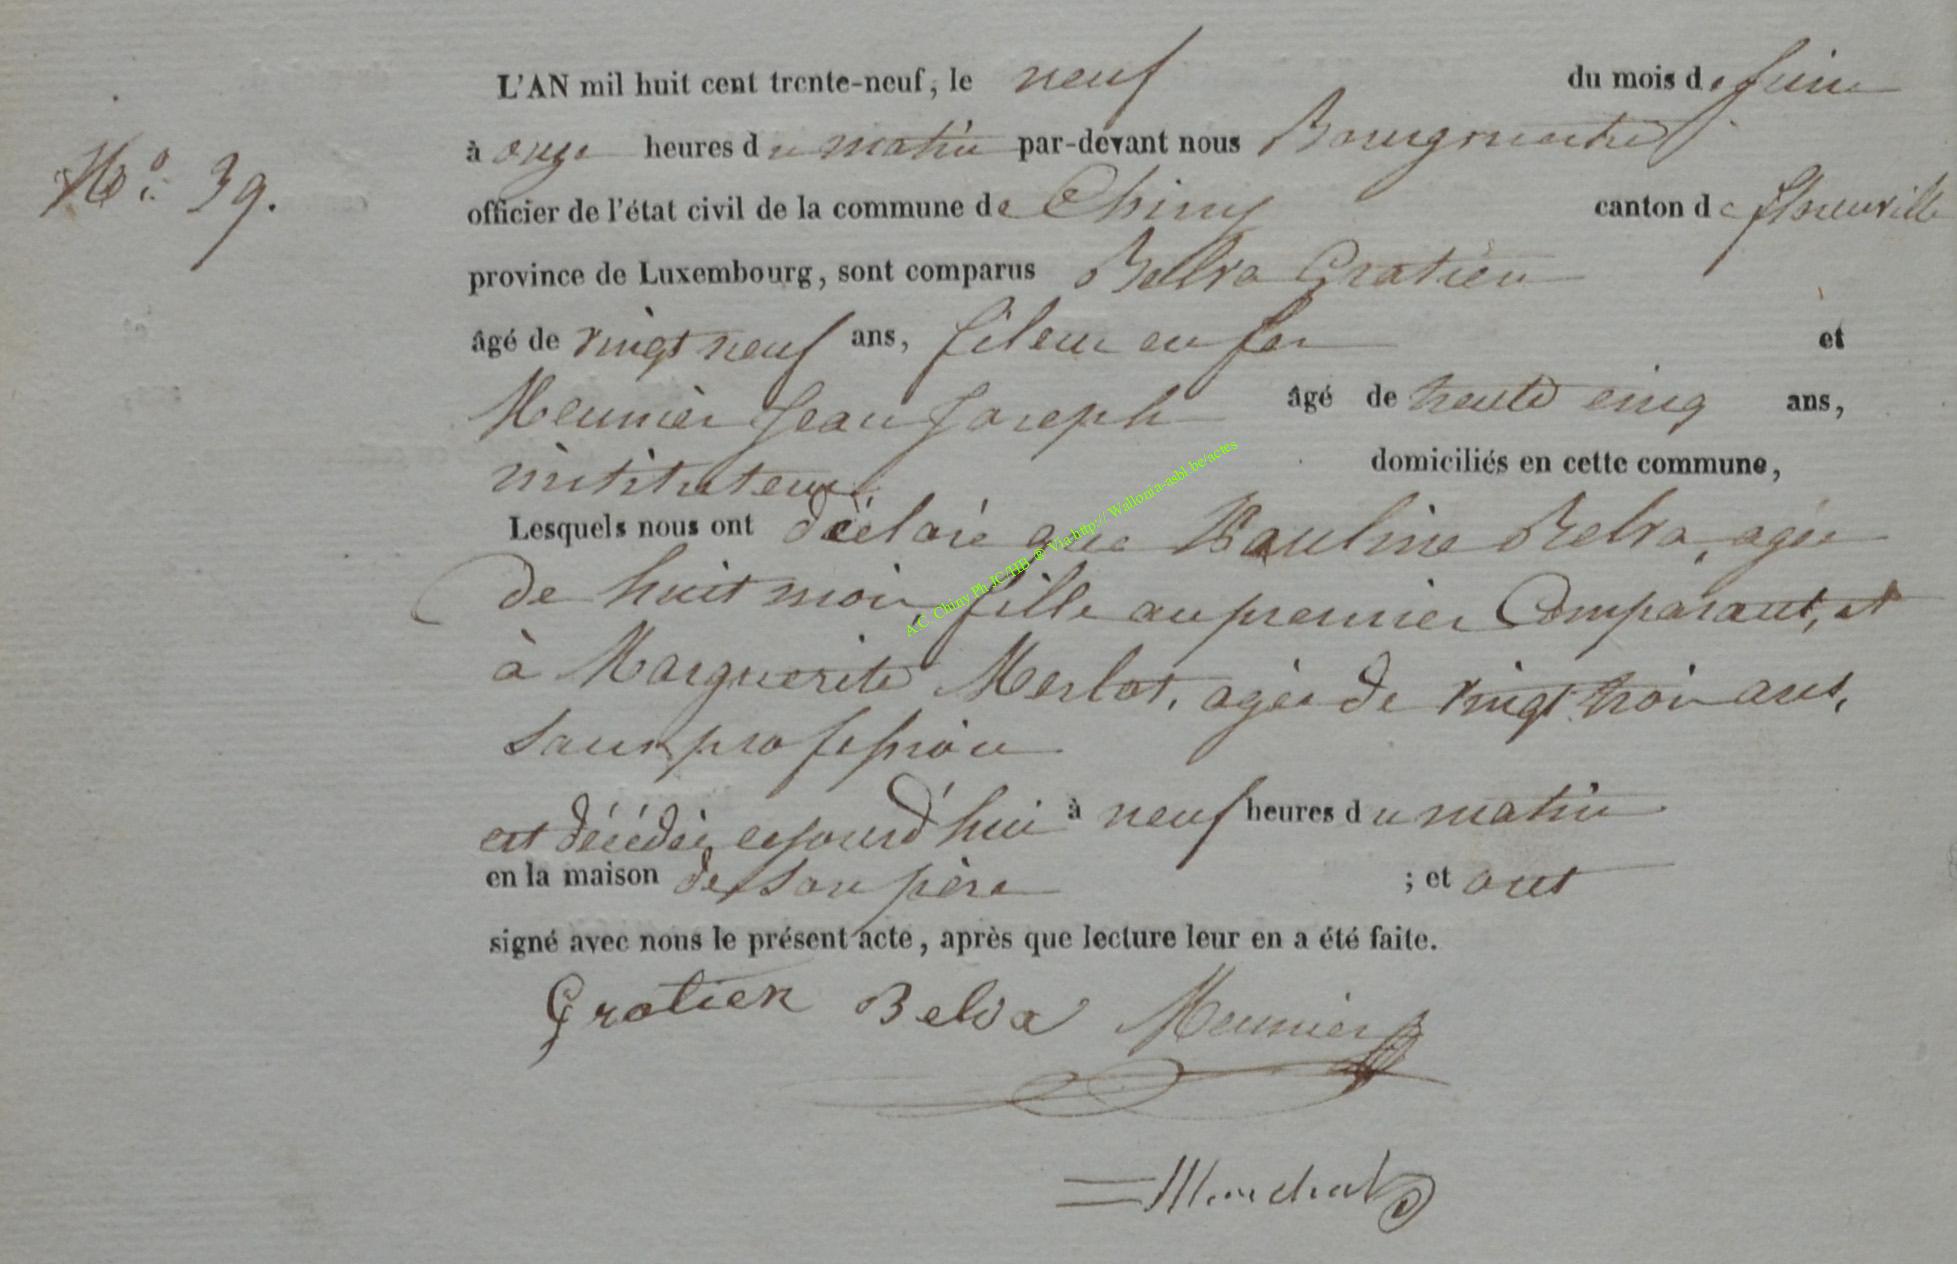 L'AN mil huit cent trente-neuf, le neuf du mois de juin
à onze heures du matin par-devant nous Bourgmestre
N.º 39.
officier de l'état civil de la commune de Chiny canton de florenville
province de Luxembourg, sont comparus Belva Gratien
âgé de vingt neuf ans, fileur en fer et
Meunier Jean Joseph âgé de trente cinq ans,
instituteur, domiciliés en cette commune,
Lesquels nous ont déclaré que Pauline Belva, agée
de huit mois, fille au premier Comparant, et
à Marguerite Merlot, agée de vingt trois ans,
sans profession
est décédée cejourd'hui à neuf heures du matin
en la maison de son père ; et ont
signé avec nous le présent acte, après que lecture leur en a été faite.
Gratien Belva Meunier
A.C Chiny Ph JC/HB ® Via http:// Wallonia-asbl be/actes